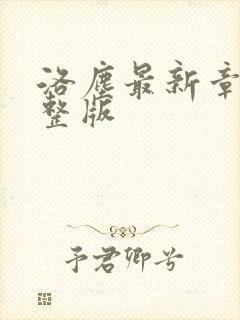 洛尘最新章
整版
予君卿兮